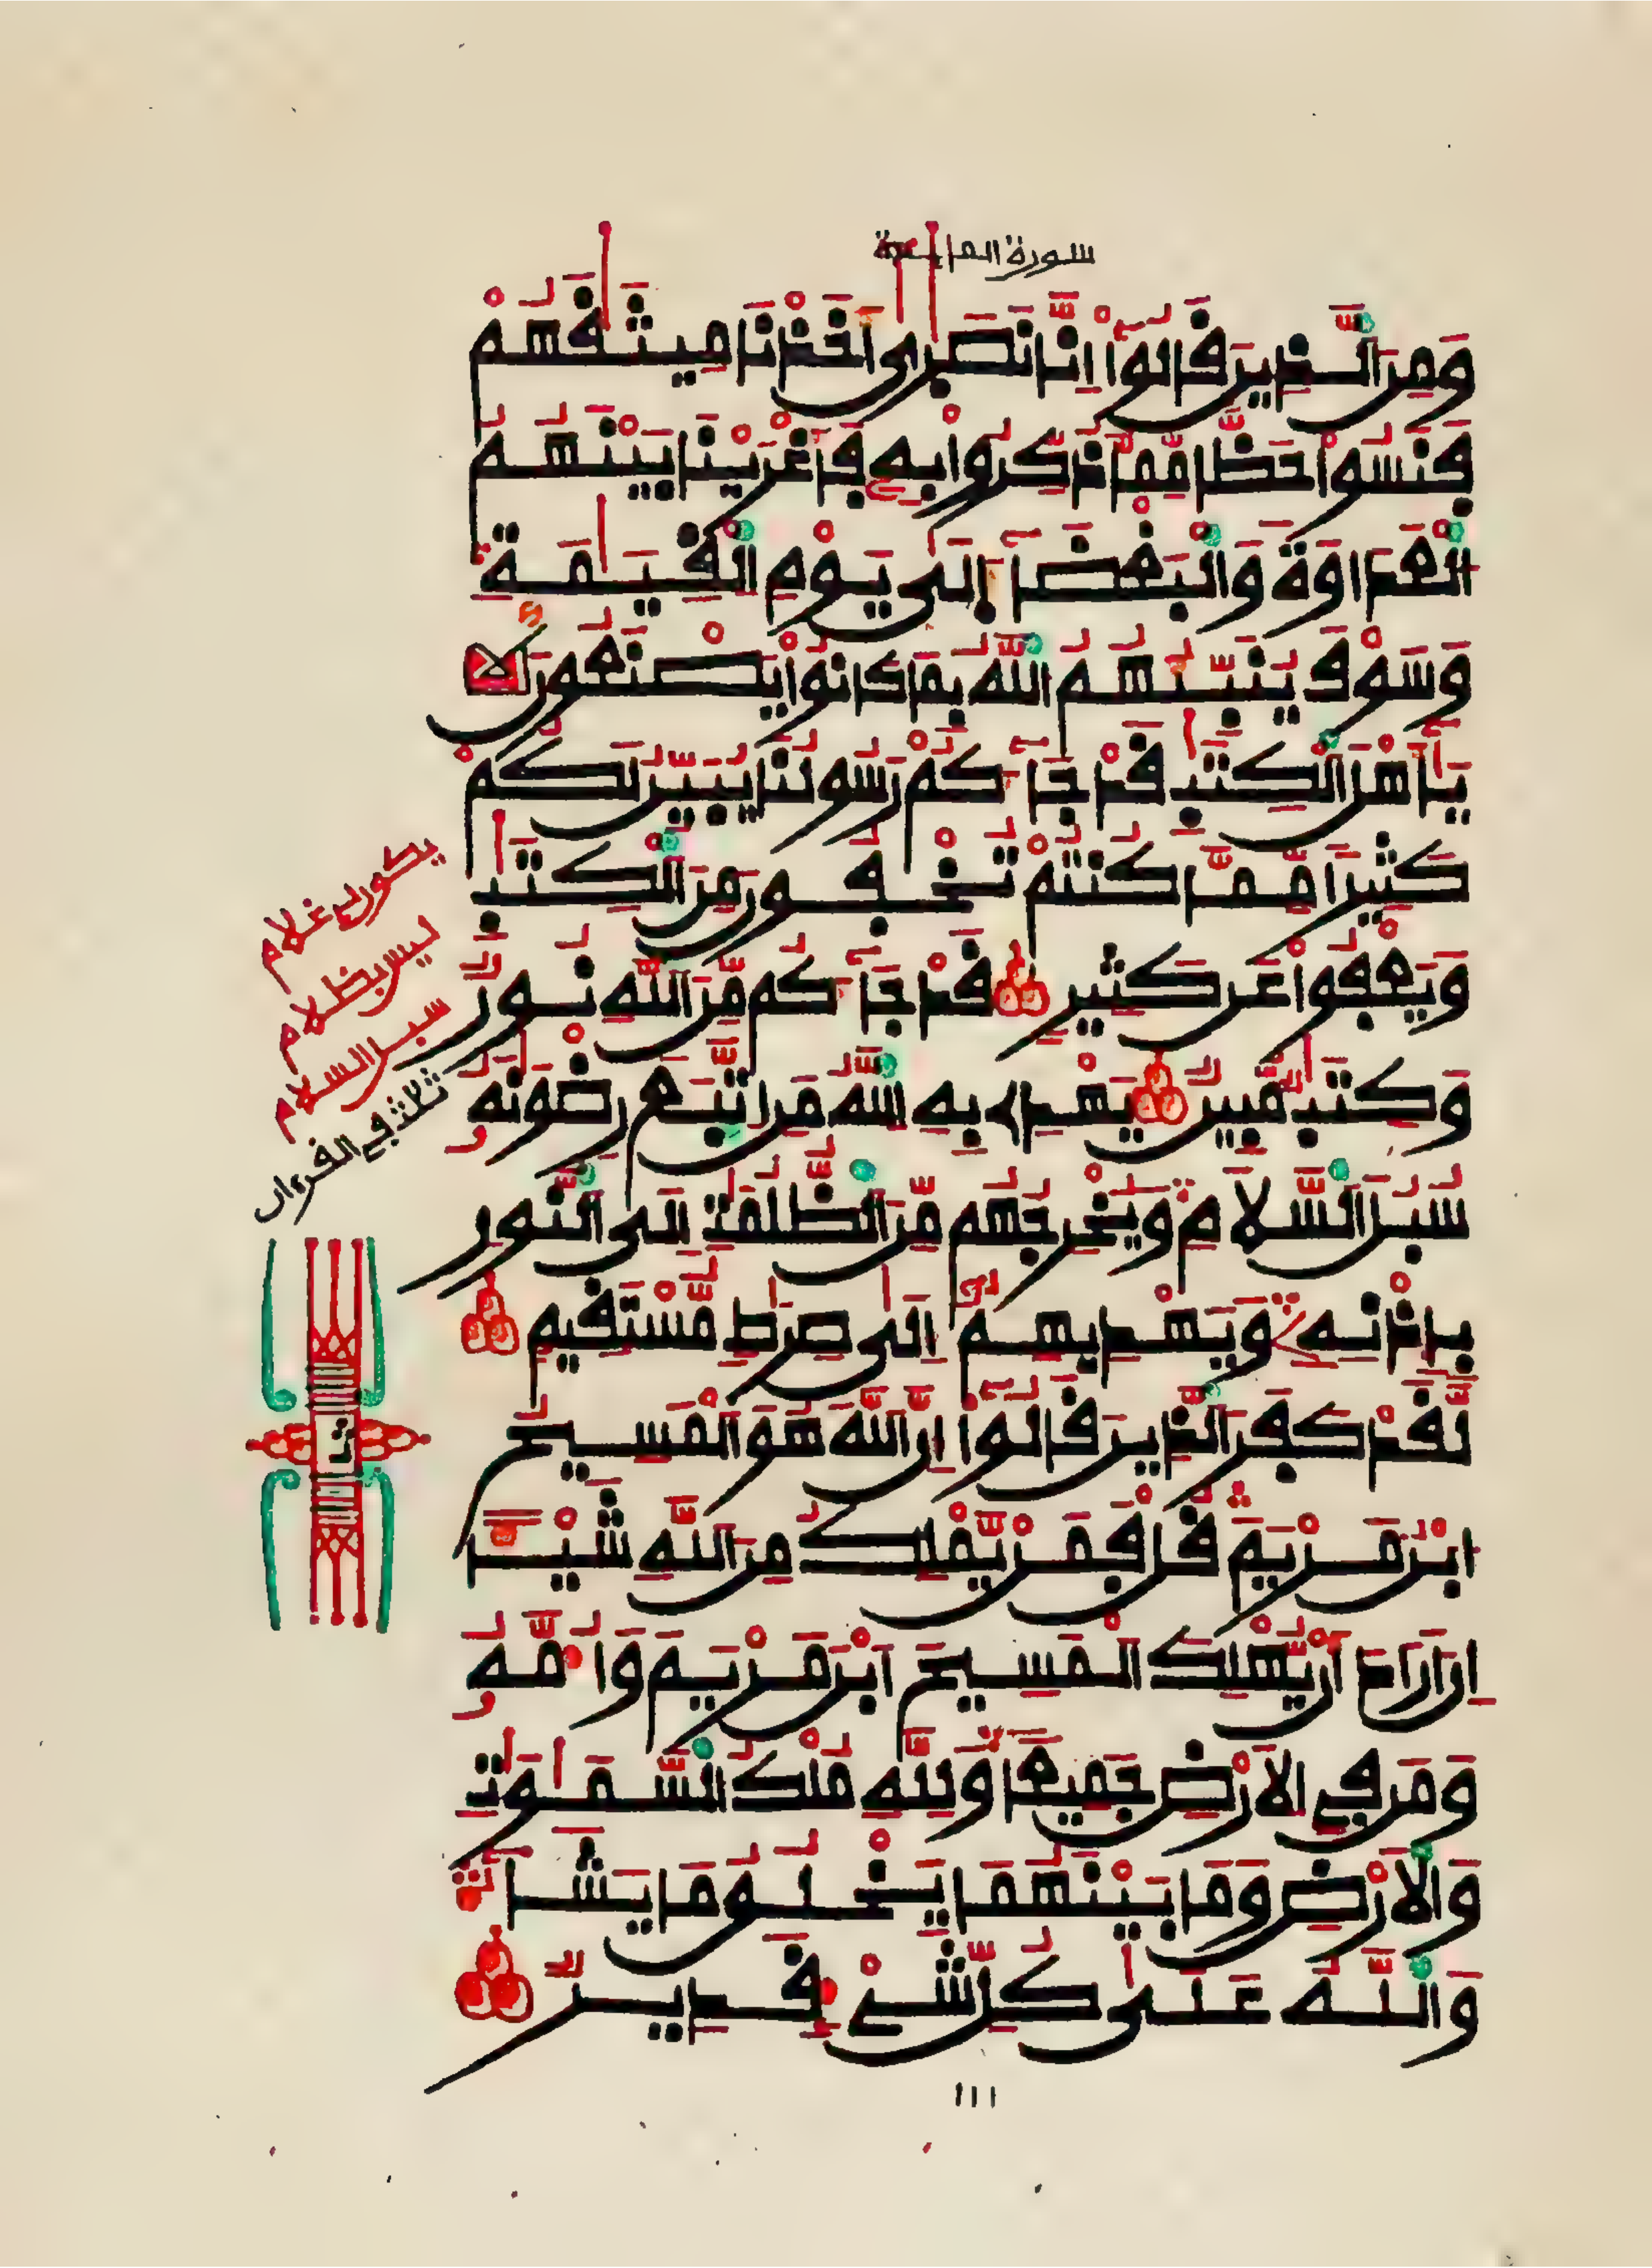 سورة المايدة
وَمِنَ الَّذِينَ قَالُوا إِنَّا نَصَٰرَىٰ أَخَذْنَا مِيثَٰقَهُمْ
فَنَسُوا حَظًّا مِّمَّا ذُكِّرُوا بِهِ فَأَغْرَيْنَا بَيْنَهُمُ
الْعَدَاوَةَ وَالْبَغْضَاءَ إِلَىٰ يَوْمِ الْقِيَٰمَةِ
وَسَوْفَ يُنَبِّئُهُمُ اللَّهُ بِمَا كَانُوا يَصْنَعُونَ
يَٰأَهْلَ الْكِتَٰبِ قَدْ جَاءَكُمْ رَسُولُنَا يُبَيِّنُ لَكُمْ
كَثِيرًا مِّمَّا كُنتُمْ تُخْفُونَ مِنَ الْكِتَٰبِ
وَيَعْفُوا عَن كَثِيرٍ قَدْ جَاءَكُم مِّنَ اللَّهِ نُورٌ
وَكِتَٰبٌ مُّبِينٌ يَهْدِي بِهِ اللَّهُ مَنِ اتَّبَعَ رِضْوَٰنَهُ
سُبُلَ السَّلَامِ وَيُخْرِجُهُم مِّنَ الظُّلُمَٰتِ إِلَى النُّورِ
بِإِذْنِهِ وَيَهْدِيهِمْ إِلَىٰ صِرَٰطٍ مُّسْتَقِيمٍ
لَّقَدْ كَفَرَ الَّذِينَ قَالُوا إِنَّ اللَّهَ هُوَ الْمَسِيحُ
ابْنُ مَرْيَمَ قُلْ فَمَن يَّمْلِكُ مِنَ اللَّهِ شَيْئًا
إِنْ أَرَادَ أَن يُّهْلِكَ الْمَسِيحَ ابْنَ مَرْيَمَ وَأُمَّهُ
وَمَن فِي الْأَرْضِ جَمِيعًا وَلِلَّهِ مُلْكُ السَّمَٰوَٰتِ
وَالْأَرْضِ وَمَا بَيْنَهُمَا يَخْلُقُ مَا يَشَاءُ
وَاللَّهُ عَلَىٰ كُلِّ شَيْءٍ قَدِيرٌ
يكون لي غلام
ليس بظلام
سبل السلام
ثلث في القرءان
ثمن
١١١